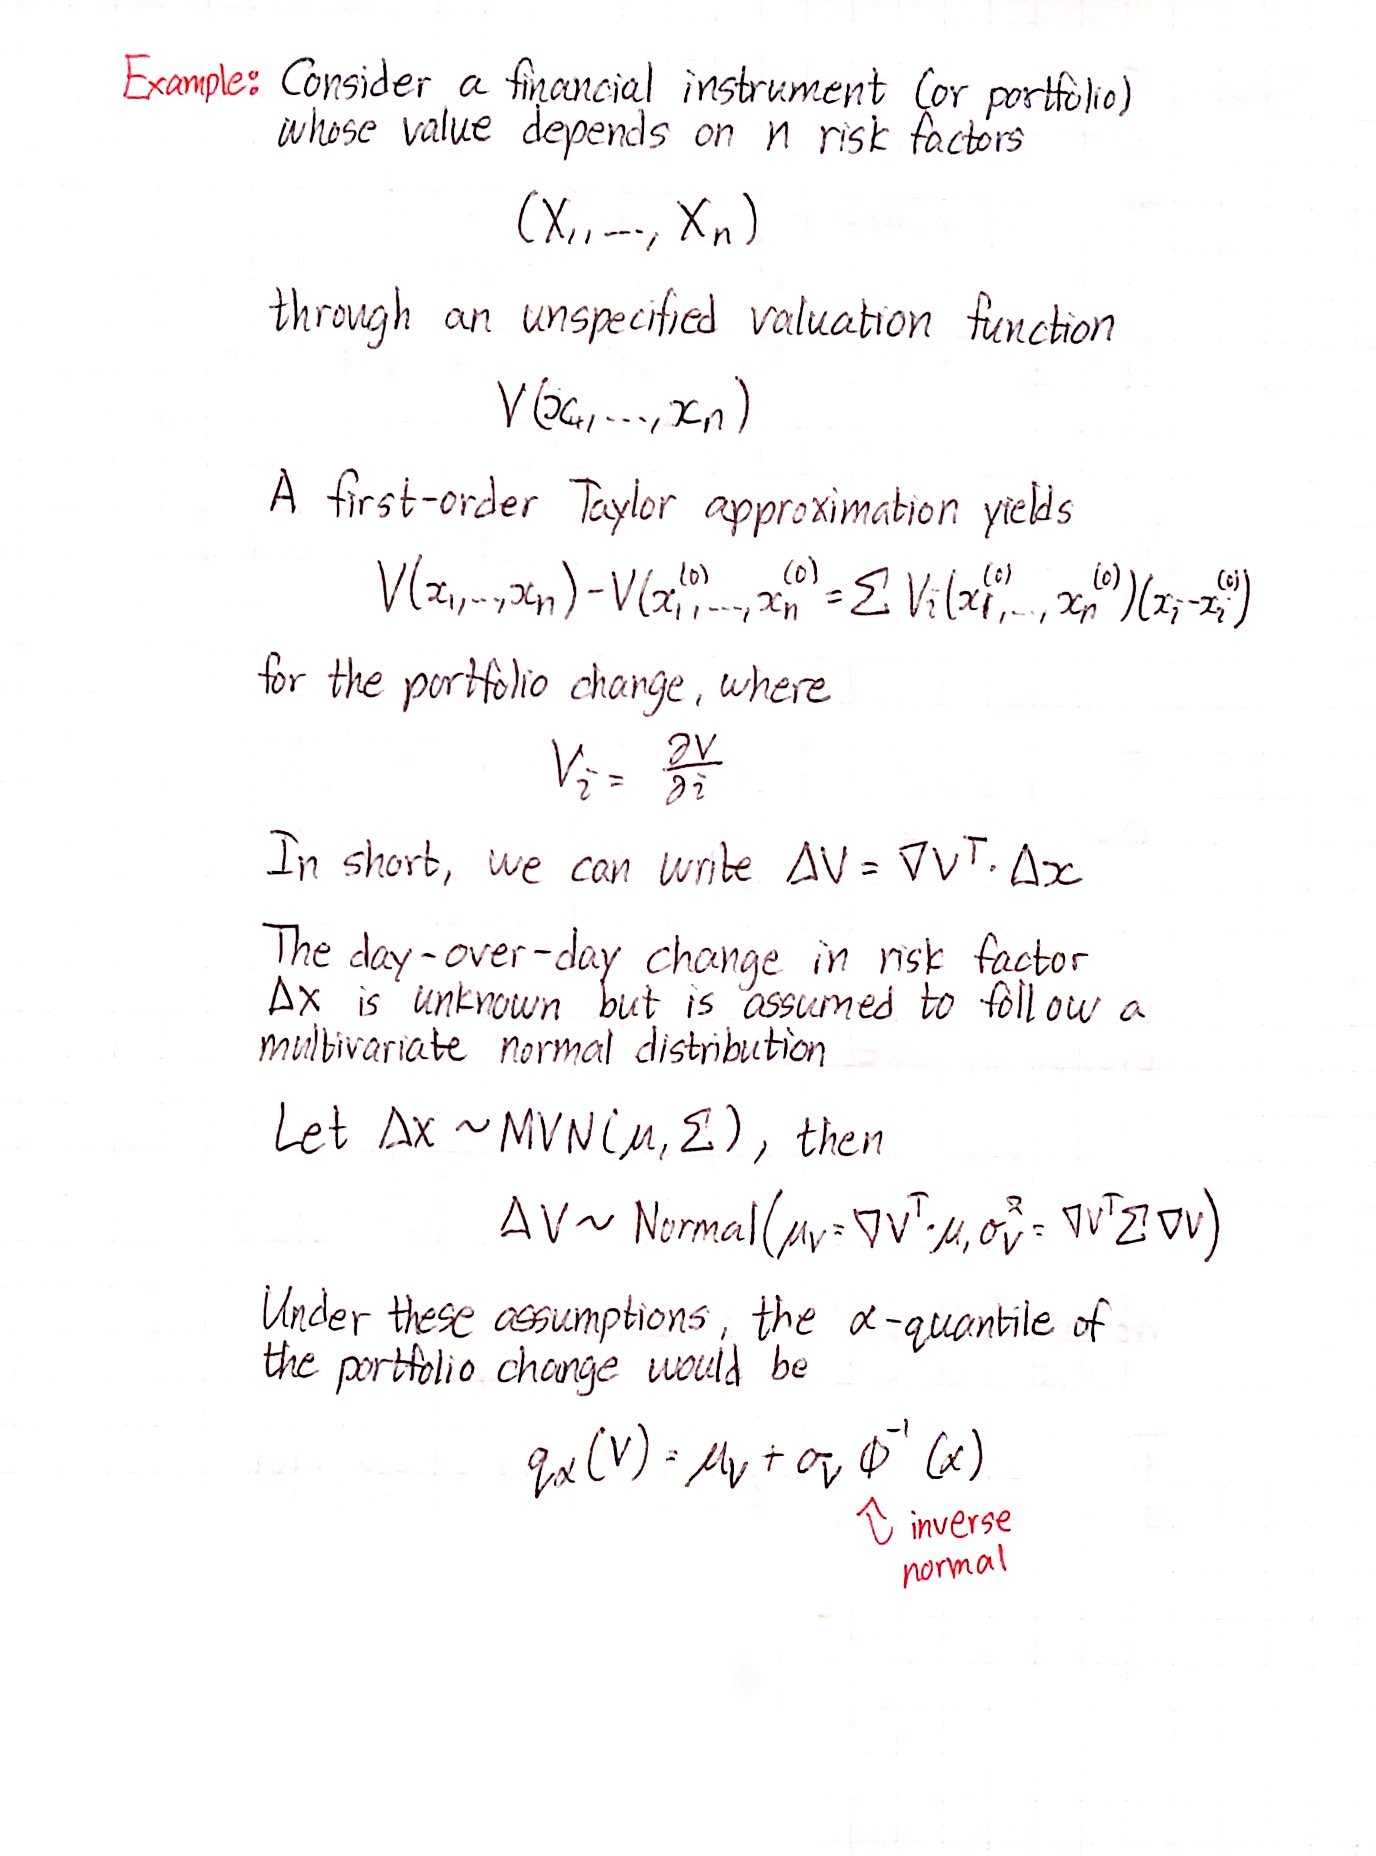 Example: Consider a financial instrument (or portfolio)
whose value depends on n risk factors
(X₁, ..., Xₙ)
through an unspecified valuation function
V(x₁, ..., xₙ)
A first-order Taylor approximation yields
V(x₁, ..., xₙ) - V(x₁⁽⁰⁾, ..., xₙ⁽⁰⁾ = Σ Vᵢ(x₁⁽⁰⁾, ..., xₙ⁽⁰⁾)(xᵢ - xᵢ⁽⁰⁾)
for the portfolio change, where
Vᵢ = ∂V/∂i
In short, we can write ΔV = ∇Vᵀ · Δx
The day-over-day change in risk factor
ΔX is unknown but is assumed to follow a
multivariate normal distribution
Let ΔX ~ MVN(μ, Σ), then
ΔV ~ Normal(μᵥ = ∇Vᵀ · μ, σᵥ² = ∇Vᵀ Σ ∇V)
Under these assumptions, the α-quantile of
the portfolio change would be
q_α(V) = μᵥ + σᵥ Φ⁻¹(α)
⇑ inverse
normal